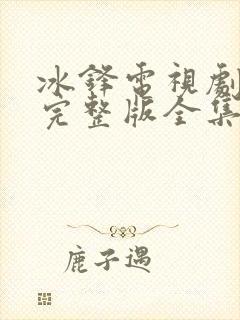 冰鋒電視劇
完整版全集
鹿子遇